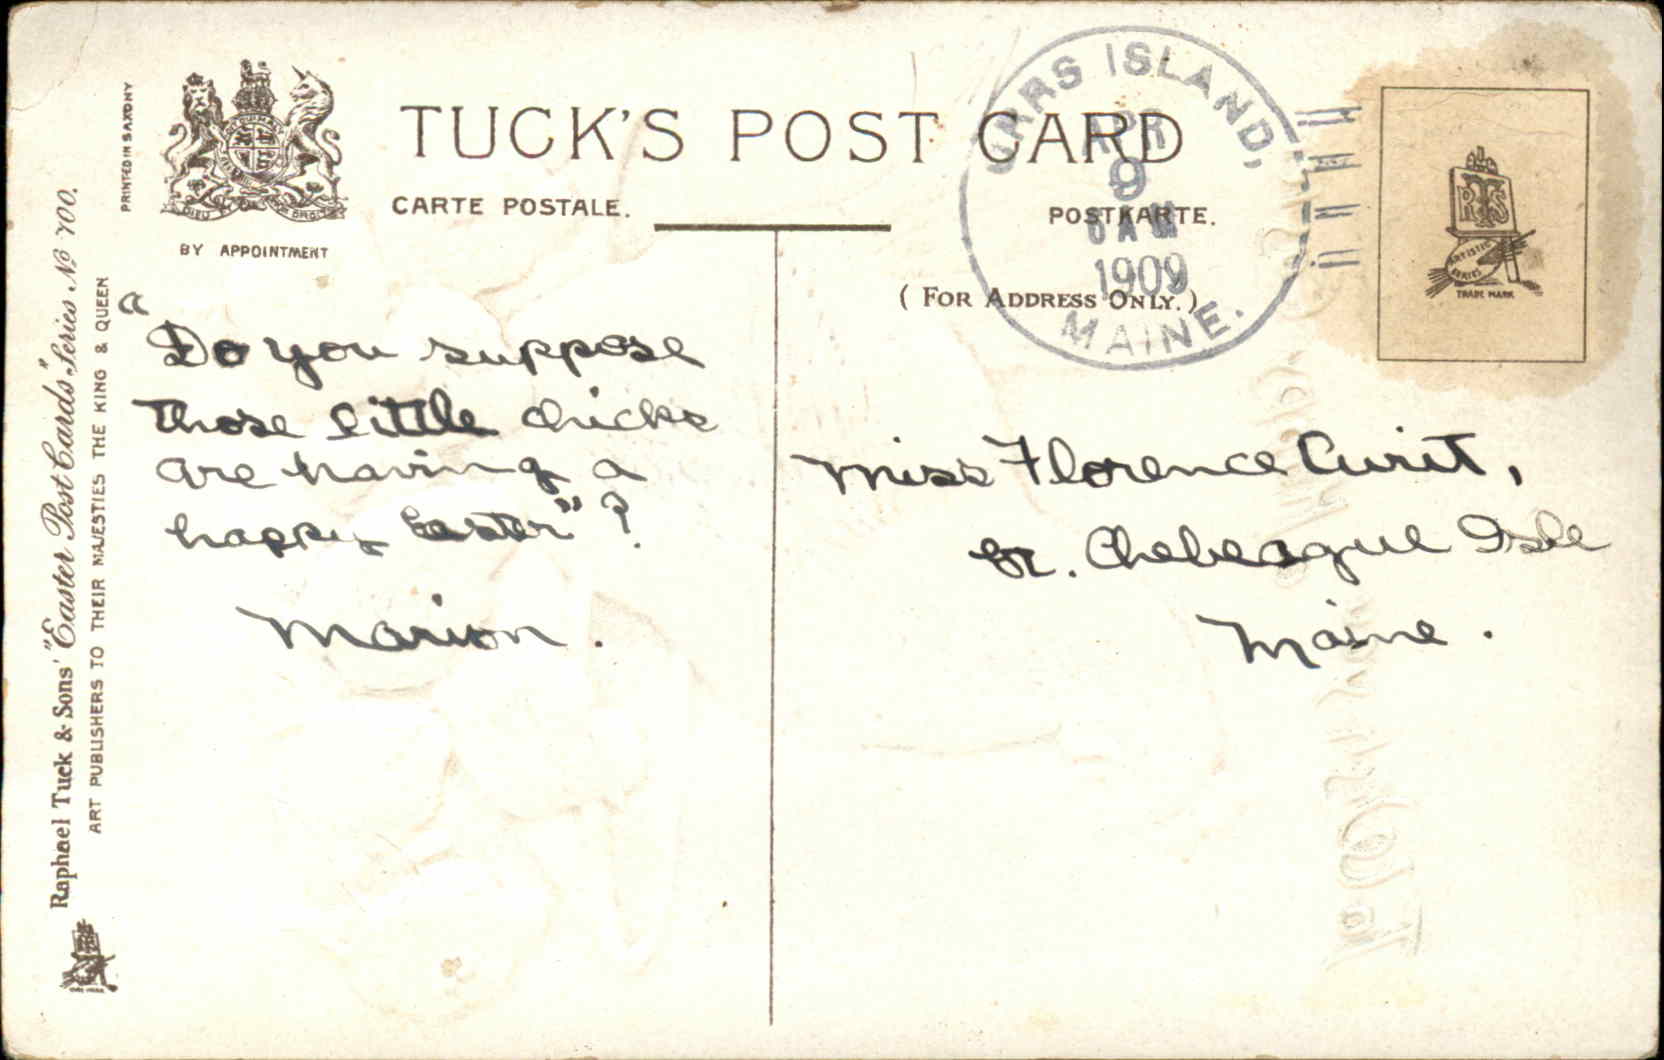 PRINTED IN SAXONY
BY APPOINTMENT
TUCK'S POST CARD
CARTE POSTALE.
POSTKARTE.
(FOR ADDRESS ONLY.)
ORRS ISLAND,
APR
9
AM
1909
MAINE.
RTS
ARTISTIC
SERIES
TRADE MARK
Raphael Tuck & Sons' "Easter Post Cards" Series No 700.
ART PUBLISHERS TO THEIR MAJESTIES THE KING & QUEEN
"Do you suppose
those little chicks
are having a
happy Easter"?
Marion.
Miss Florence Curit,
Gr. Chebeague Isle
Maine.